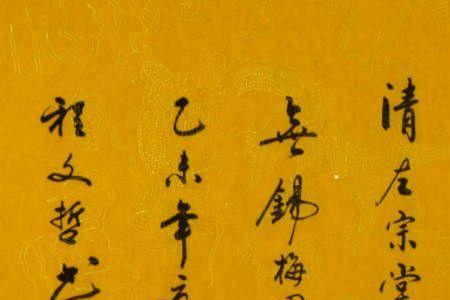 清左宗棠
無錫梅
乙未年
程文哲